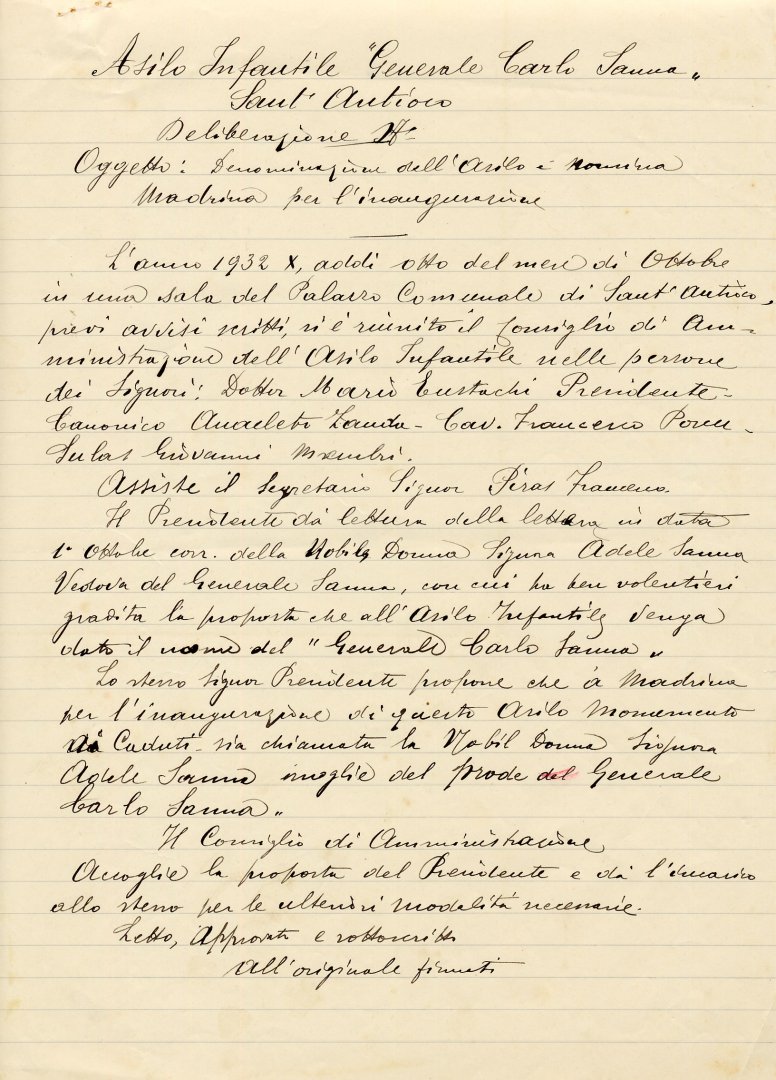 Asilo Infantile "Generale Carlo Sanna„
Sant'Antioco
Deliberazione N°
Oggetto: Denominazione dell'Asilo e nomina
Madrina per l'inaugurazione
L'anno 1932 X, addì otto del mese di Ottobre
in una sala del Palazzo Comunale di Sant'Antioco,
previ avvisi scritti, si è riunito il Consiglio di Am-
ministrazione dell'Asilo Infantile nelle persone
dei Signori: Dottor Mario Eustachi Presidente -
Canonico Anacleto Zanda - Cav. Francesco
Sulas Giovanni Membri.
Assiste il Segretario Signor Piras Francesco.
Il Presidente dà lettura della lettera in data
1° Ottobre corr. della Nobile Donna Signora Adele Sanna
Vedova del Generale Sanna, con cui ha ben volentieri
gradita la proposta che all'Asilo Infantile venga
dato il nome del "Generale Carlo Sanna„
Lo stesso Signor Presidente propone che a Madrina
per l'inaugurazione di questo Asilo Momemento
ai Caduti - sia chiamata la Nobil Donna Signora
Adele Sanna moglie del prode del Generale
Carlo Sanna„
Il Consiglio di Amministrazione
Accoglie la proposta del Presidente e dà l'incarico
allo stesso per le ulteriori modalità necessarie.
Letto, Approvato e sottoscritto
all'originale firmati